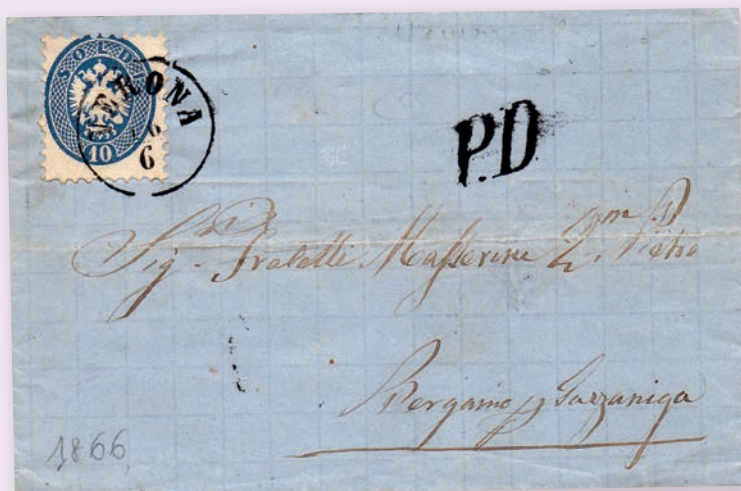 SOLDI
10
VERONA
6
6
P.D
Sig. Fratelli Masserini Qm Pietro
Bergamo p Gazzaniga
1866